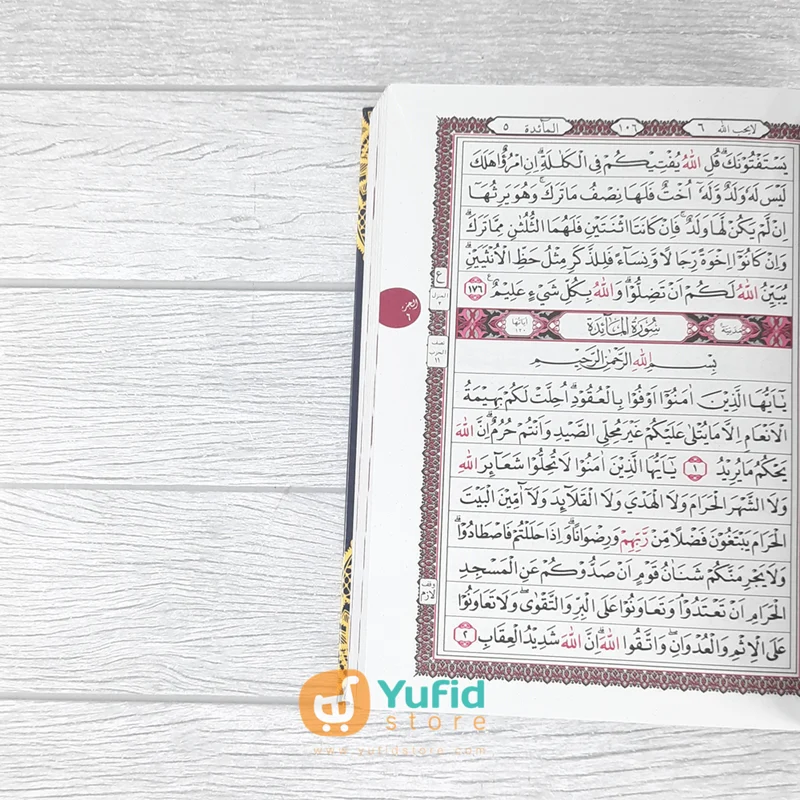 لا يحب الله ٦
١٠٦
المآئدة ٥
يَسْتَفْتُوْنَكَۗ قُلِ اللّٰهُ يُفْتِيْكُمْ فِى الْكَلٰلَةِۗ اِنِ امْرُؤٌا هَلَكَ
لَيْسَ لَهٗ وَلَدٌ وَّلَهٗٓ اُخْتٌ فَلَهَا نِصْفُ مَا تَرَكَۚ وَهُوَ يَرِثُهَآ
اِنْ لَّمْ يَكُنْ لَّهَا وَلَدٌۚ فَاِنْ كَانَتَا اثْنَتَيْنِ فَلَهُمَا الثُّلُثٰنِ مِمَّا تَرَكَۗ
وَاِنْ كَانُوْٓا اِخْوَةً رِّجَالًا وَّنِسَاۤءً فَلِلذَّكَرِ مِثْلُ حَظِّ الْاُنْثَيَيْنِۗ
يُبَيِّنُ اللّٰهُ لَكُمْ اَنْ تَضِلُّوْاۗ وَاللّٰهُ بِكُلِّ شَيْءٍ عَلِيْمٌ ١٧٦
ع
المنزل ٢
الجزء ٦
مدنية
سُوْرَةُ الْمَآئِدَةِ
اٰياتها ١٢٠
نصف الحزب ١١
بِسْمِ اللّٰهِ الرَّحْمٰنِ الرَّحِيْمِ
يٰٓاَيُّهَا الَّذِيْنَ اٰمَنُوْٓا اَوْفُوْا بِالْعُقُوْدِۗ اُحِلَّتْ لَكُمْ بَهِيْمَةُ
الْاَنْعَامِ اِلَّا مَا يُتْلٰى عَلَيْكُمْ غَيْرَ مُحِلِّى الصَّيْدِ وَاَنْتُمْ حُرُمٌۗ اِنَّ اللّٰهَ
يَحْكُمُ مَا يُرِيْدُ ١ يٰٓاَيُّهَا الَّذِيْنَ اٰمَنُوْا لَا تُحِلُّوْا شَعَاۤئِرَ اللّٰهِ
وَلَا الشَّهْرَ الْحَرَامَ وَلَا الْهَدْيَ وَلَا الْقَلَاۤئِدَ وَلَآ اٰۤمِّيْنَ الْبَيْتَ
الْحَرَامَ يَبْتَغُوْنَ فَضْلًا مِّنْ رَّبِّهِمْ وَرِضْوَانًاۗ وَاِذَا حَلَلْتُمْ فَاصْطَادُوْاۗ
وَلَا يَجْرِمَنَّكُمْ شَنَاٰنُ قَوْمٍ اَنْ صَدُّوْكُمْ عَنِ الْمَسْجِدِ
وقف لازم
الْحَرَامِ اَنْ تَعْتَدُوْاۘ وَتَعَاوَنُوْا عَلَى الْبِرِّ وَالتَّقْوٰىۖ وَلَا تَعَاوَنُوْا
عَلَى الْاِثْمِ وَالْعُدْوَانِۖ وَاتَّقُوا اللّٰهَۗ اِنَّ اللّٰهَ شَدِيْدُ الْعِقَابِ ٢
Yufid
store
www.yufidstore.com